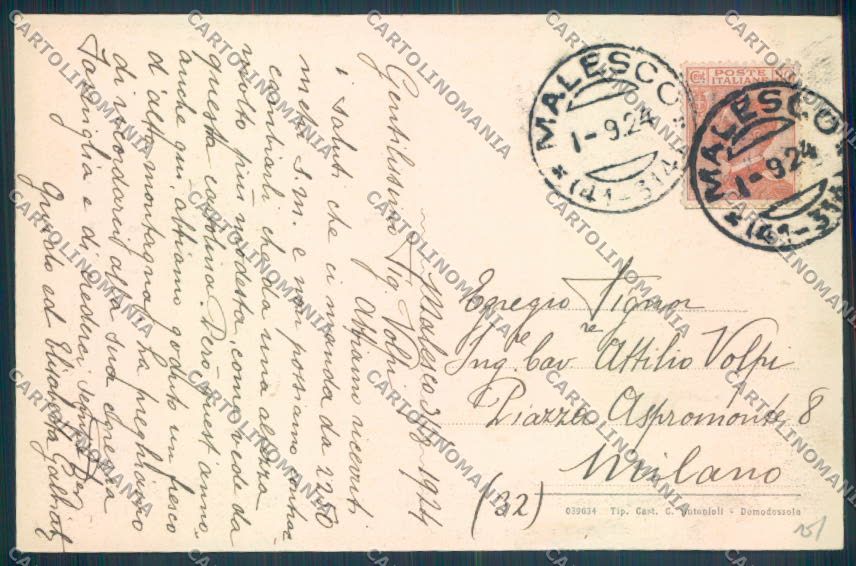 Malesco 31/8-1924
Gentilissimo Sig. Volpi
Abbiamo ricevuti
i saluti che ci manda da 2250
metri s.m. e non possiamo
cambiarli che da una altezza
molto più modesta, come vede da
questa cartolina. Però quest'anno
anche qui abbiamo goduto un fresco
d'alta montagna. La preghiamo
di ricordarci alla sua egregia
famiglia e di crederci
Guido ed Elisabetta
POSTE
ITALIANE
MALESCO
1-9.24
(41-314)
MALESCO
1-9.24
(41-314)
Egregio Signor
Ing.re Cav.re Attilio Volpi
Piazza Aspromonte 8
Milano
(32)
039634 Tip. Cart. C. Antonioli - Domodossola
CARTOLINOMANIA